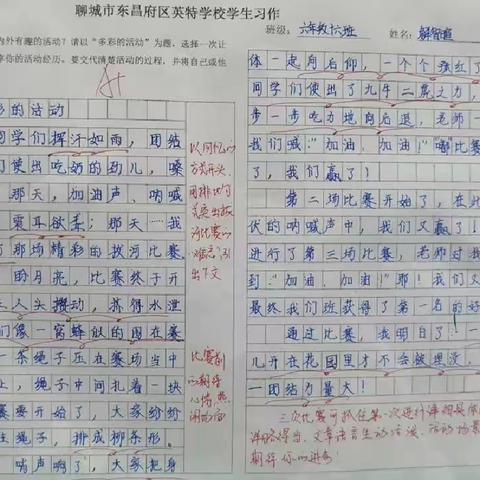 聊城市东昌府区英特学校学生习作
班级：六年级十六班
姓名：解智
内外有趣的活动？请以“多彩的活动”为题，选择一次让
享你的活动经历。要交代清楚活动的过程，并将自己或他
A+
彩的活动
同学们挥汗如雨，团结
们使出吃奶的劲儿，嗓
那天，加油声、呐喊
震耳欲聋；那天……我
了那场精彩的拔河比赛
的月亮，比赛终于开
人头攒动，挤得水泄
们像一窝蜂似的围在赛
一条绳子压在赛场当中
上，绳子中间扎着一块
赛要开始了，大家纷纷
住绳子，排成柳条形。
哨声响了，大家把身
以回忆的
方式开头，
用排比句
式突出拔
河比赛的
难忘，引
出下文
比赛前
的期待
体一起向后仰，一个个强红了
同学们使出了九牛二虎之力，
步一步吃力地向后退。老师一
我们喊：“加油、加油！”“嘟”比赛
了，我们赢了！
第二场比赛开始了，在此
伏的呐喊声中，我们又赢了！
进行了第三场比赛，老师对我
到：“加油、加油！”耶！我们又
最终我们班获得了第一名的好
通过比赛，我明白了：一
儿开在花园里才不会被埋没，
一团结力量大！
三次比赛可抓住第一次进行详细具体
详略得当，文章语言生动活泼，活动场景
期待你的进步！